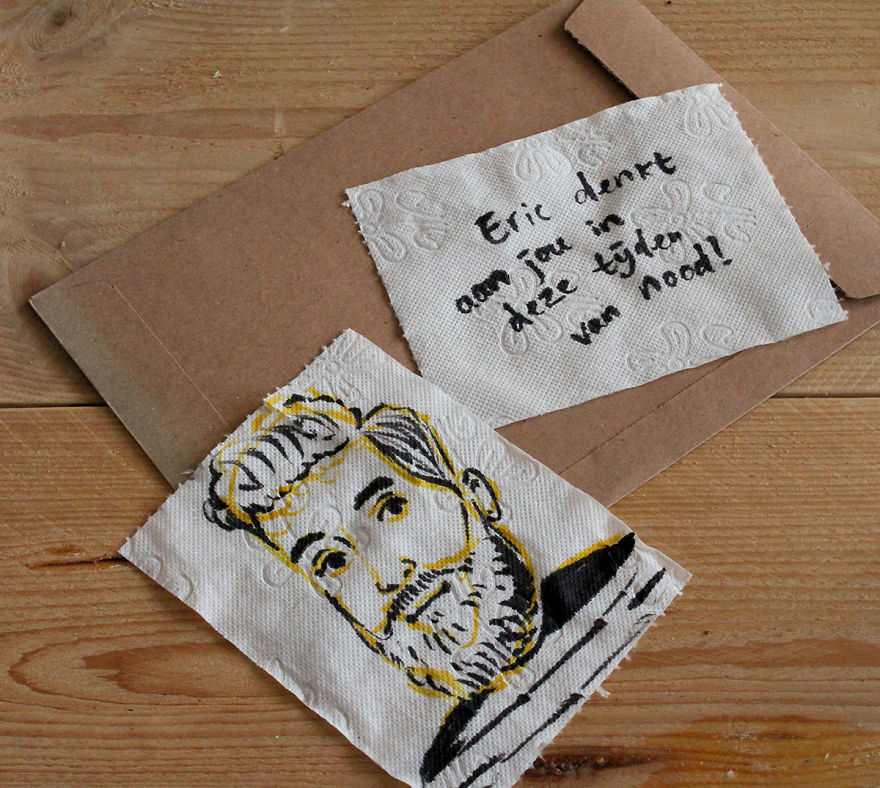 Eric denkt
aan jou in
deze tijden
van nood!